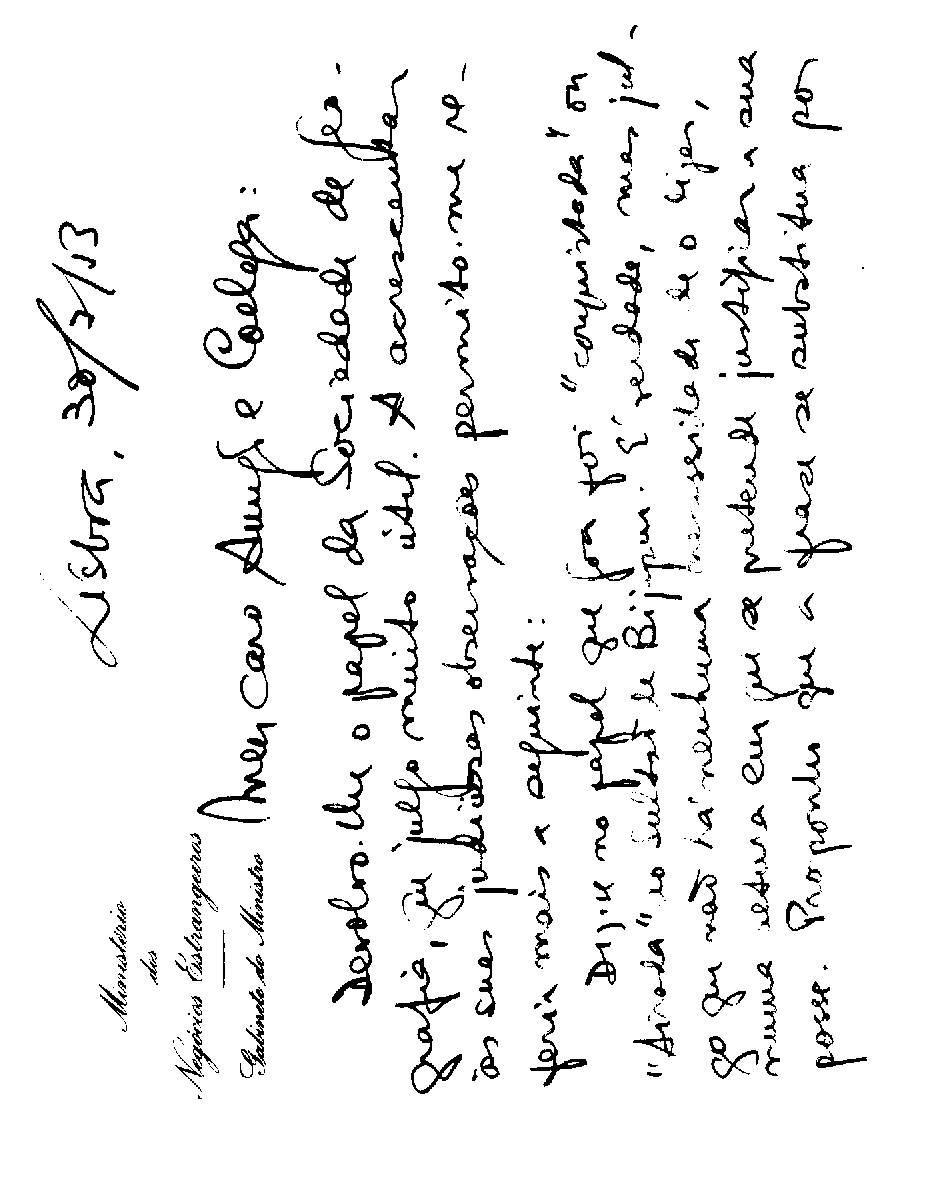 Ministério
dos
Negócios Estrangeiros
Gabinete do Ministro
Lisboa, 30/7/53
Meu caro Amigo e Colega:
Devolvo-lhe o papel da Sociedade de Geo-
grafia, que julgo muito útil. A acrescentar
às suas judiciosas observações permito-me re-
ferir mais a seguinte:
Diz-se no papel que Goa foi "conquistada" ou
"tirada" ao Sultão de Bijapur. É verdade, mas jul-
go que não há nenhuma necessidade de o dizer,
numa altura em que se pretende justificar a sua
posse. Proponho que a frase se substitua por